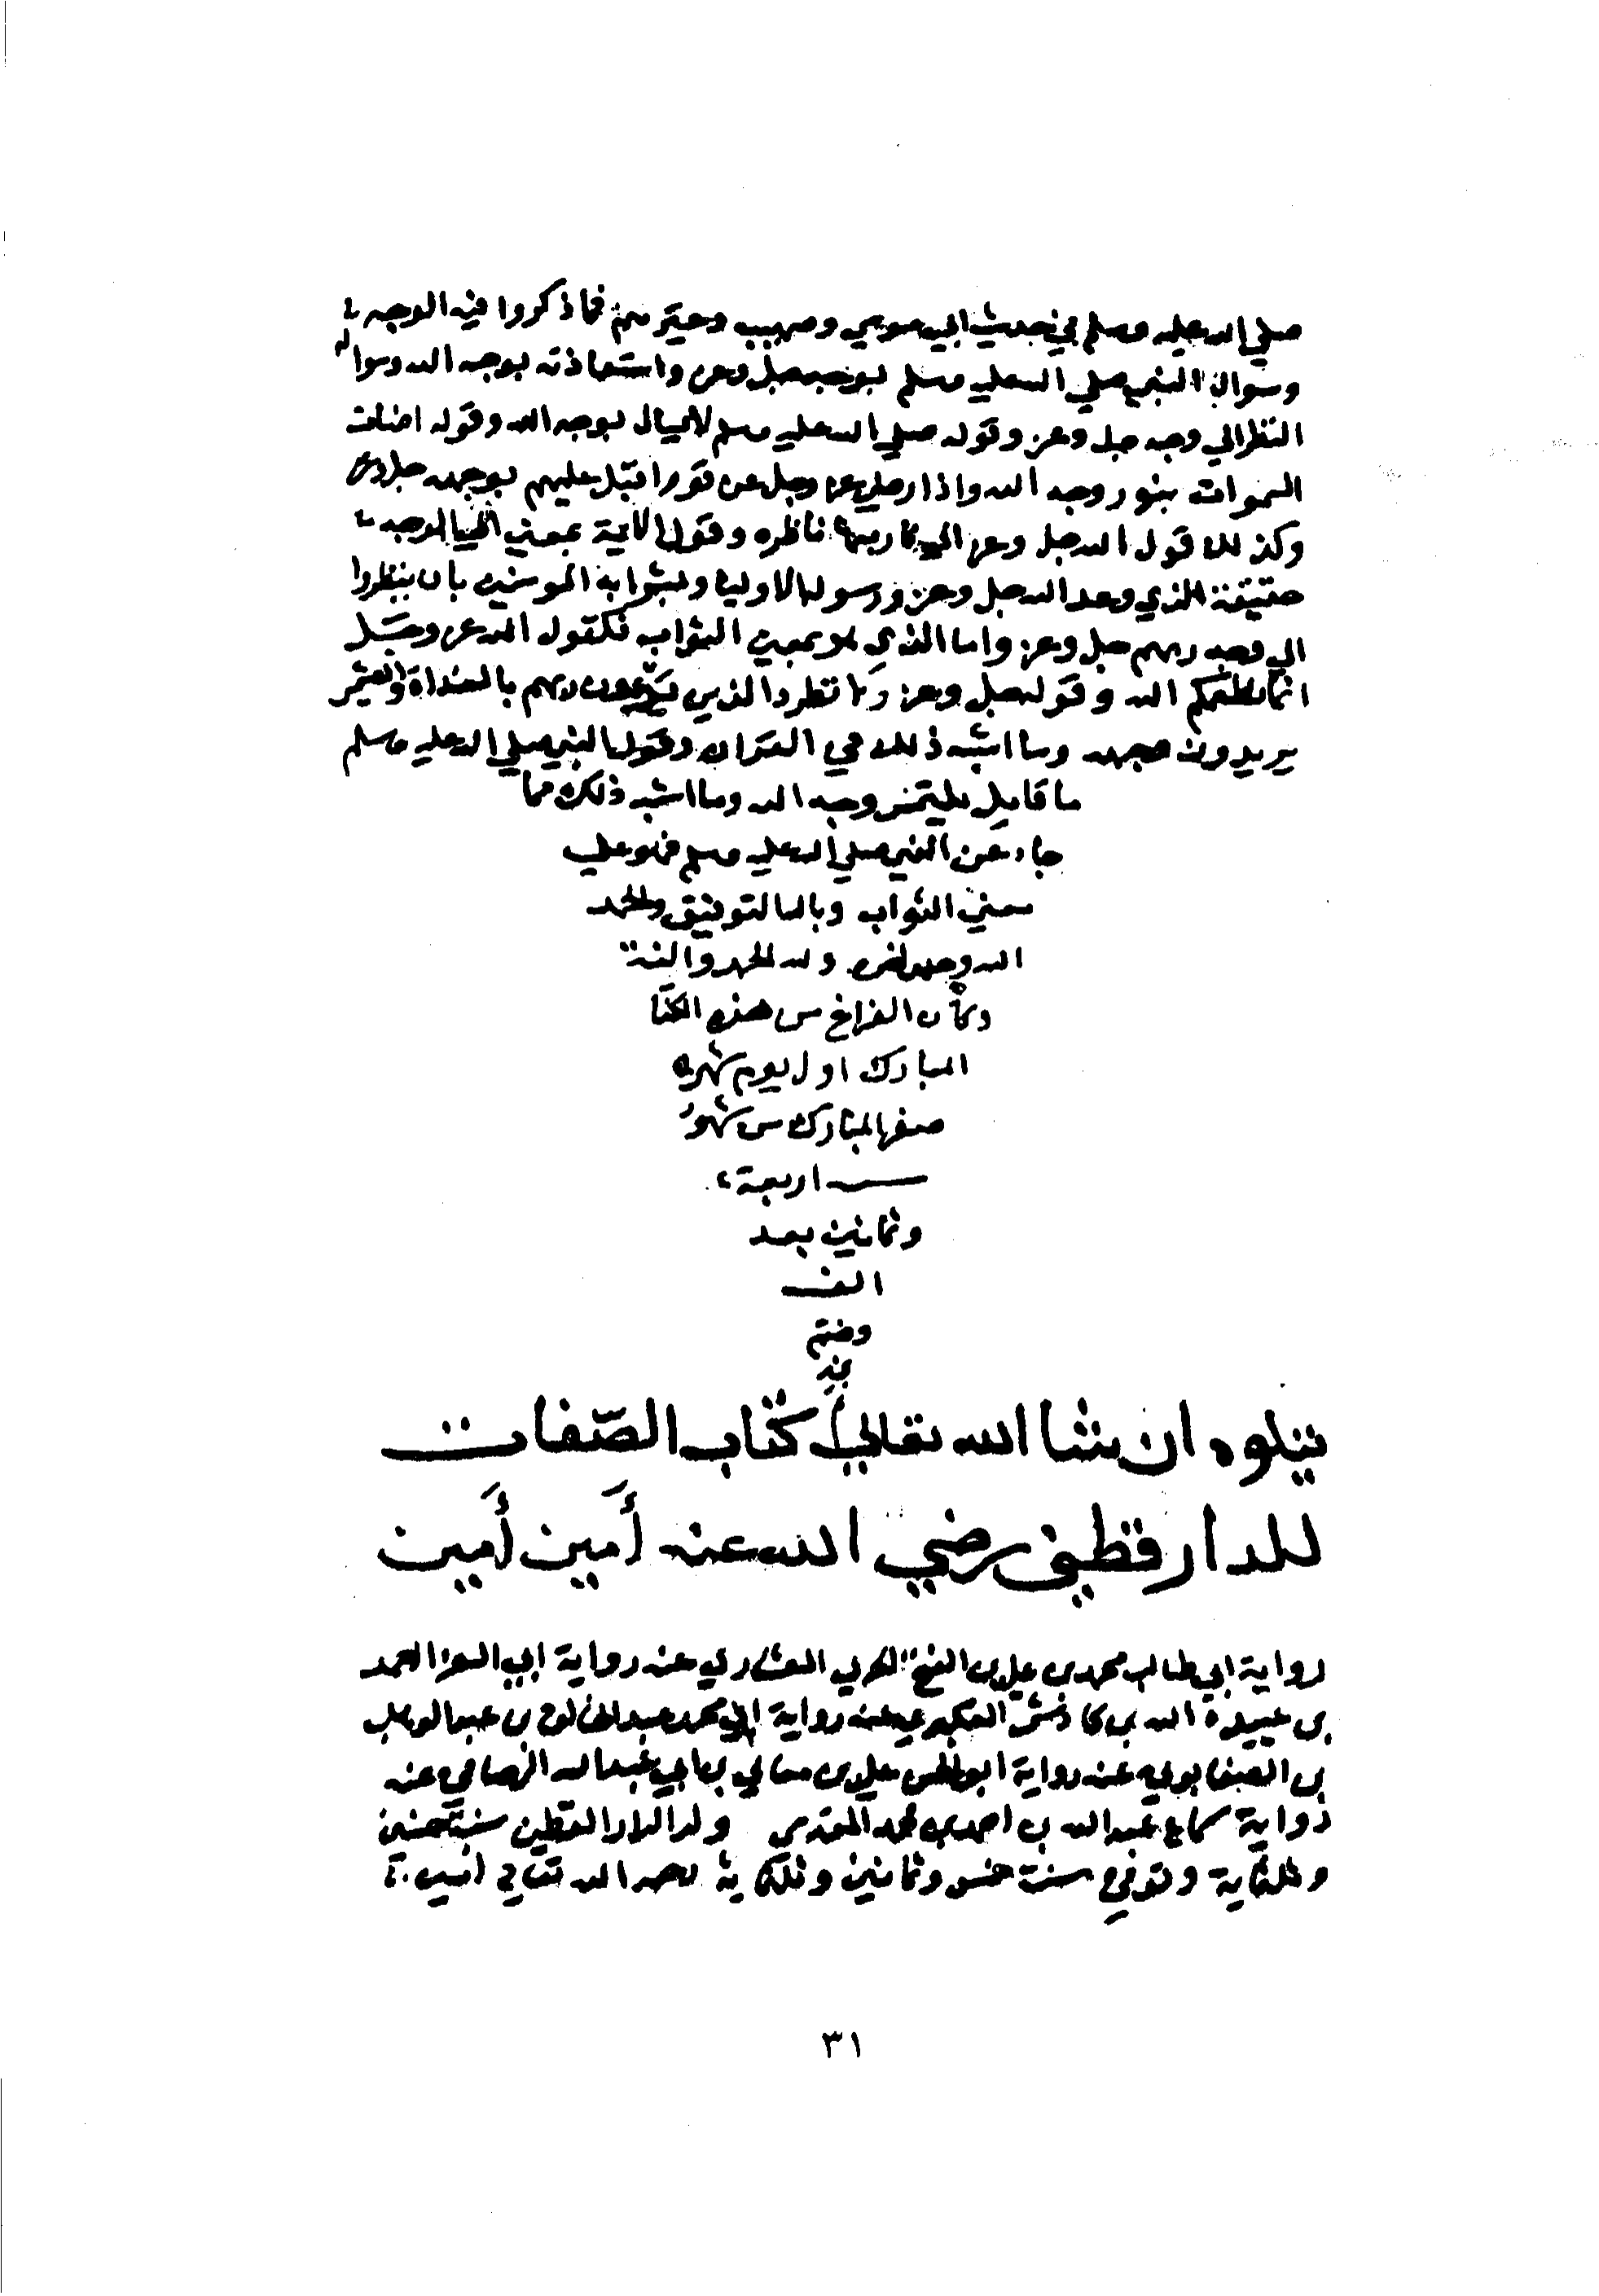 صلي الله عليه وسلم في حديث ابي موسي وصهيب وغيرهم فما ذكروا فيه الوجه
وسوال النبي صلي الله عليه وسلم بوجهه جل وعز واستعاذته بوجه الله وسواله
النظر الي وجهه جل وعز وقوله صلي الله عليه وسلم لا يسال بوجه الله وقوله اضات
السموات بنور وجه الله واذا رضي عز وجل عن قوم اقبل عليهم بوجهه جل وعز
وكذلك قول الله جل وعز الي ربها ناظره وقول الايمة بمعني الي الوجه
حقيقة الذي وعد الله جل وعز ورسوله الاوليا وبشر به المومنين بان ينظروا
الي وجه ربهم جل وعز واما الذي هو بمعني الثواب فكقول الله عز وجل
انما نطعمكم الله وقوله جل وعز ولا تطرد الذين يدعون ربهم بالغداة والعشي
يريدون وجهه وما اشبه ذلك في القران وقول النبي صلي الله عليه وسلم
ما قايل يلتمس وجه الله وما اشبه ذلك مما
جاء عن النبي صلي الله عليه وسلم فهو علي
معني الثواب وبالله التوفيق والحمد
الله وحده وله الحمد والمنة
وكان الفراغ من هذه الكتا
المبارك اول يوم شهر
صفر المبارك من شهور
سنة اربعة
وثمانين بعد
الف
وختم
بخير
يتلوه ان شا الله تعالي كتاب الصّفات
للدارقطني رضي الله عنه أمين أمين
رواية ابي طالب محمد بن علي بن الفتح الحربي العشاري عنه رواية ابي العز احمد
بن عبيد الله بن كادش العكبري عنه رواية ابي محمد عبد الخالق بن عبد الوهاب
بن الصابوني عنه رواية ابو الحسن علي بن معالي بن ابي عبد الله الرصافي عنه
رواية سماع عبد الله بن احمد بن محمد المقدسي ولد الدارالقطني سنة خمس
وثلثماية وتوفي سنة خمس وثمانين وثلثماية رحمه الله تعالي امين
٣١